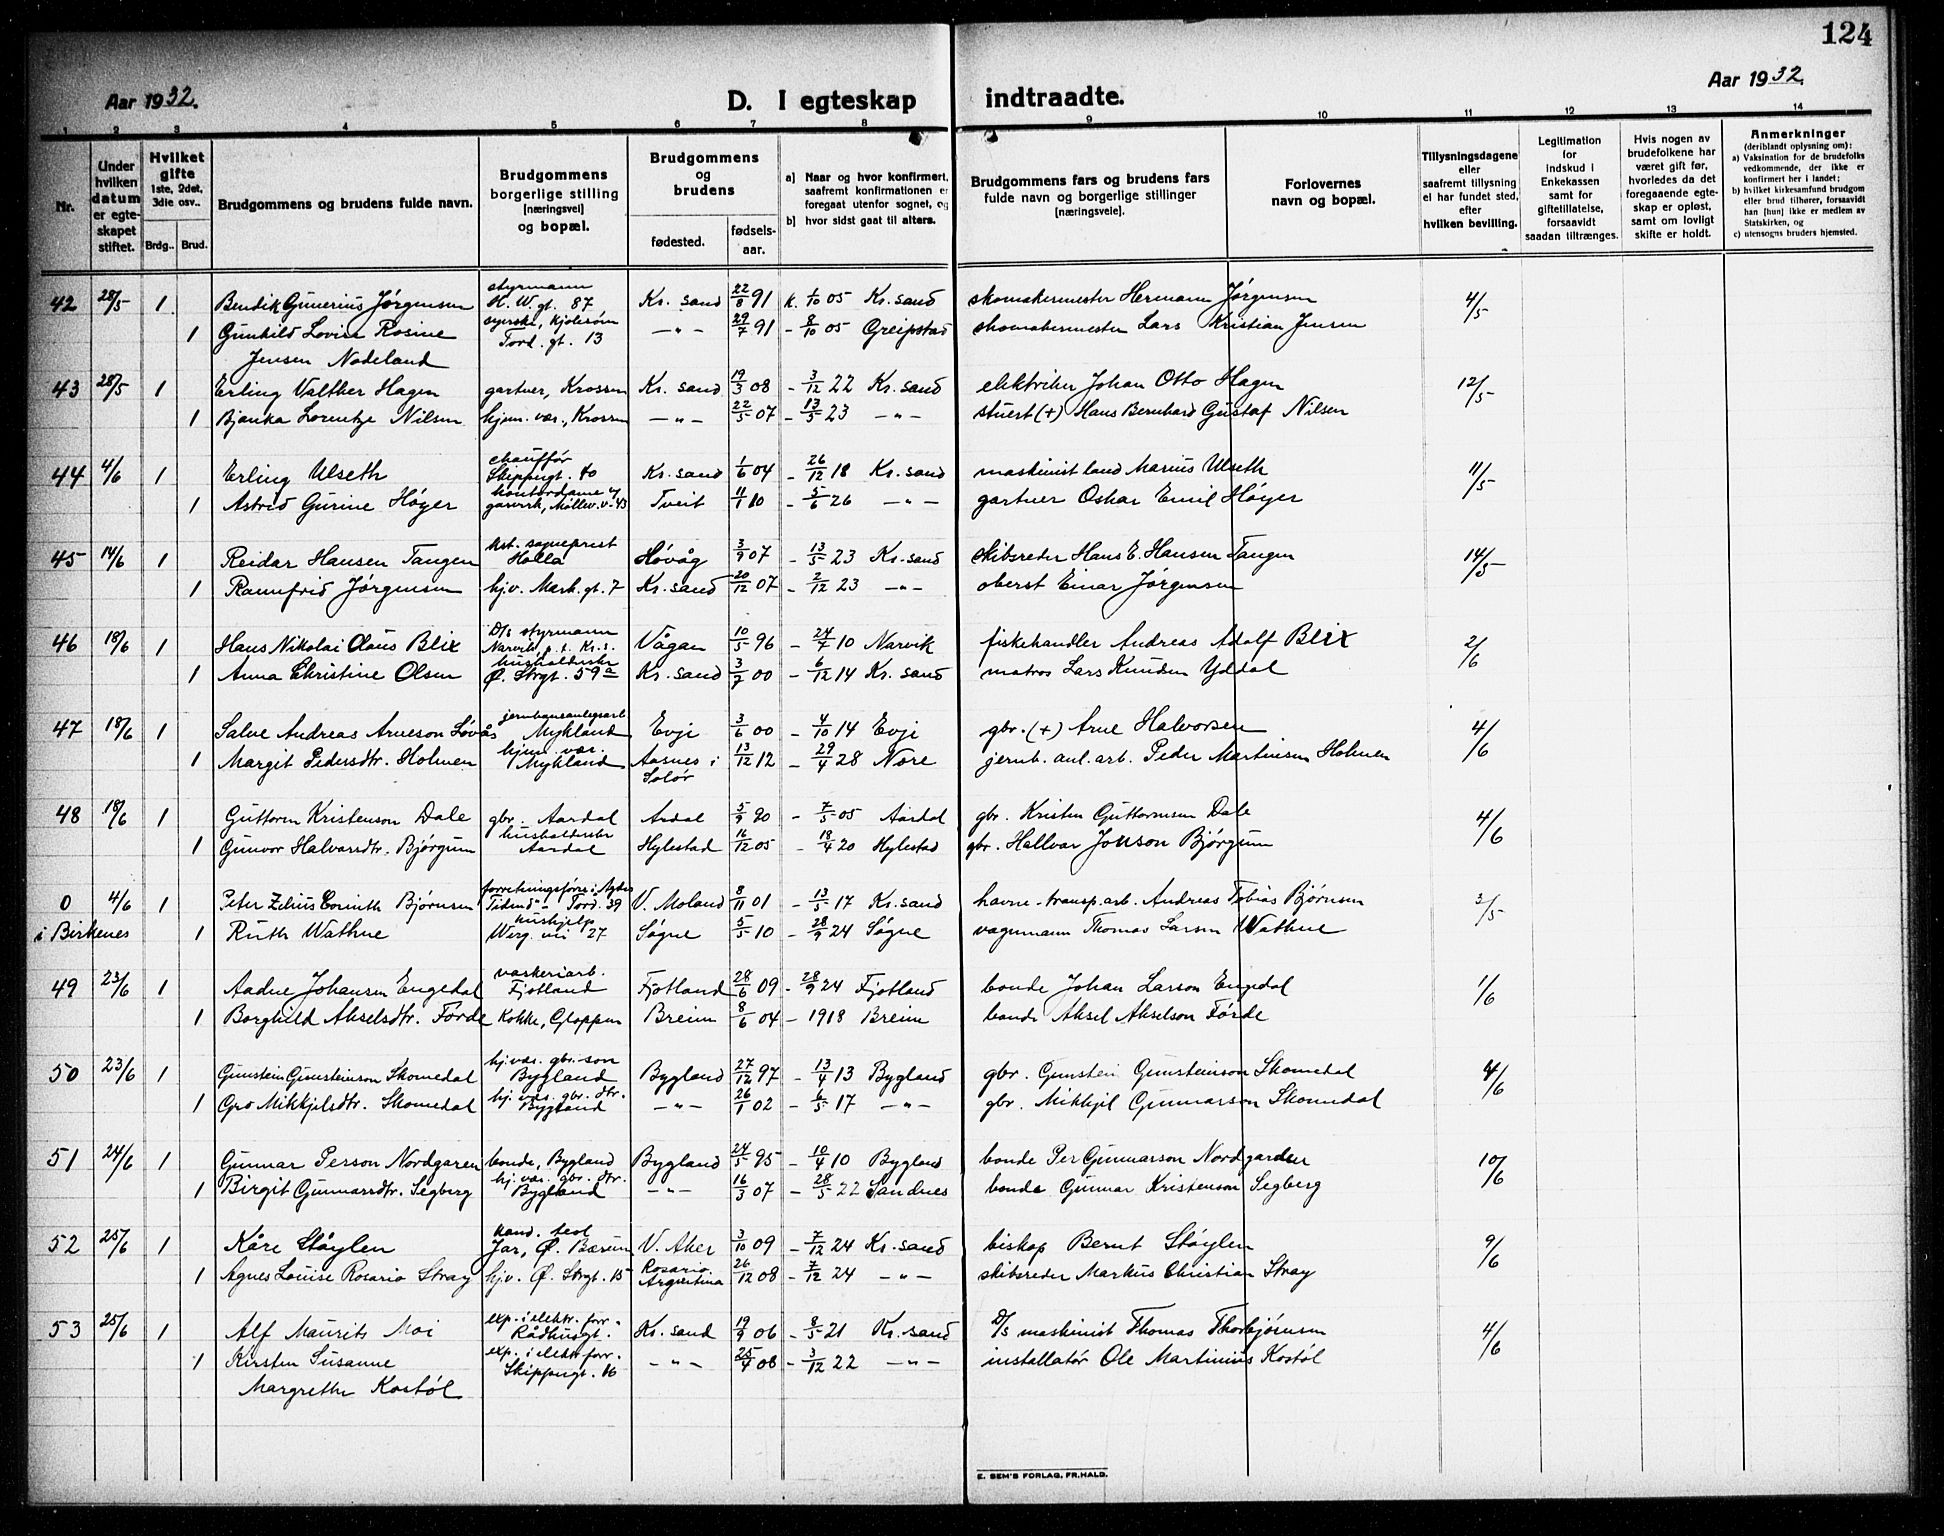 124
Aar 1932.
D. I egteskap
indtraadte.
Aar 1932.
1 2 3 4 5 6 7 8 9 10 11 12 13 14
Nr.
Under hvilken datum er egteskapet stiftet.
Hvilket gifte 1ste, 2det, 3die osv..
Brdg..
Brud.
Brudgommens og brudens fulde navn.
Brudgommens borgerlige stilling [næringsvei] og bopæl.
Brudgommens og brudens
fødested.
fødselsaar.
a] Naar og hvor konfirmert, saafremt konfirmationen er foregaat utenfor sognet, og
b] hvor sidst gaat til alters.
Brudgommens fars og brudens fars fulde navn og borgerlige stillinger [næringsveie].
Forlovernes navn og bopæl.
Tillysningsdagene eller saafremt tillysning ei har fundet sted, efter hvilken bevilling.
Legitimation for indskud i Enkekassen samt for giftetillatelse, forsaavidt saadan tiltrænges.
Hvis nogen av brudefolkene har været gift før, hvorledes da det foregaaende egteskap er opløst, samt om lovligt skifte er holdt.
Anmerkninger
(deriblandt oplysning om):
a) Vaksination for de brudefolks vedkommende, der ikke er konfirmert her i landet;
b) hvilket kirkesamfund brudgom eller brud tilhører, forsaavidt han [hun] ikke er medlem av Statskirken, og
c) utensogns bruders hjemsted.
42 28/5 1 Bendik Gunerius Jørgensen styrmann H. W. gt. 87 Kr. sand 22/8 91 k. 1/10 05 Kr. sand skomakermester Hermann Jørgensen 4/5
1 Gunhild Lovise Rosine Jensen Nodeland syerske, kjolesøm Tord. gt. 13 — " — 29/7 91 - 8/10 05 Greipstad skomakermester Lars Kristian Jensen
43 28/5 1 Erling Valther Hagen gartner, Krossen Kr. sand 19/3 08 - 3/12 22 Kr. sand elektriker Johan Otto Hagen 12/5
1 Bjanka Lorentze Nilsen hjem. vær., Krossen — " — 22/5 07 - 13/5 23 — " — stuert (+) Hans Bernhard Gustaf Nilsen
44 4/6 1 Erling Ulseth chauffør Skippugt. 40 Kr. sand 1/6 04 - 26/12 18 Kr. sand maskinist land Marius Ulseth 11/5
1 Astrid Gurine Høyer kontordame v/ garvirk, Møllev. v. 43 Tveit 11/1 10 - 5/6 26 — " — gartner Oskar Emil Høyer
45 14/6 1 Reidar Hansen Tangen kst. sogneprest Holla Høvåg 3/9 07 - 13/5 23 Kr. sand skibsreder Hans E. Hansen Tangen 14/5
1 Rannfrid Jørgensen hj.v. Mark. gt. 7 Kr. sand 20/12 07 - 2/12 23 — " — oberst Einar Jørgensen
46 18/6 1 Hans Nikolai Olaus Blix D/s styrmann Narvik p. t. Kr. s. Vågan 10/5 96 - 24/7 10 Narvik fiskehandler Andreas Adolf Blix 2/6
1 Anna Christine Olsen husholderske Ø. Strgt. 59a Kr. sand 3/7 00 - 6/12 14 Kr. sand matros Lars Knudsen Yddal
47 18/6 1 Salve Andreas Arneson Løvås jernbaneanlegsarb Mykland Evje 3/6 00 - 4/10 14 Evje gbr. (+) Arne Halvorsen 4/6
1 Margit Pedersdtr. Holmen hjem. vær. Mykland Aasnes i Solør 13/12 12 - 29/4 28 Nore jernb. anl. arb. Peder Martinsen Holmen
48 18/6 1 Guttorm Kristenson Dale gbr. Aardal Ardal 5/9 90 - 7/5 05 Aardal gbr. Kristen Guttormsen Dale 4/6
1 Gunvor Halvarsdtr. Bjørgum husholderske Aardal Hylestad 16/12 05 - 18/4 20 Hylestad gbr. Hallvar Jonson Bjørgum
0 4/6 1 Peter Zelius Corinth Bjørnsen forretningsfører i Agder Tidend" Tord. 39 V. Moland 8/11 01 - 13/5 17 Kr. sand havne-transp.arb. Andreas Tobias Bjørnsen 3/5
i Birkenes 1 Ruth Wathne hushjelp Werg. vei 27 Søgne 5/5 10 - 28/9 24 Søgne vognmann Thomas Larsen Wathne
49 23/6 1 Aadne Johansen Engedal vaskeriarb. Fjotland Fjotland 28/6 09 - 28/9 24 Fjotland bonde Johan Larson Engedal 1/6
1 Borghild Akselsdtr. Førde Kokke, Gloppen Breim 8/6 04 - 1918 Breim bonde Aksel Akselson Førde
50 23/6 1 Gunstein Gunsteinson Skomedal hj. vær. gbr. son Bygland Bygland 27/12 97 - 13/4 13 Bygland gbr. Gunstein Gunsteinson Skomedal 4/6
1 Gro Mikkjelsdtr. Skomedal hj. vær. gbr. dtr. Bygland — " — 26/1 02 - 6/5 17 — " — gbr. Mikkjel Gunnarson Skomedal
51 24/6 1 Gunnar Person Nordgaren bonde, Bygland Bygland 24/5 95 - 10/4 10 Bygland bonde Per Gunnarson Nordgarden 10/6
1 Birgit Gunnarsdtr. Segberg hj. vær. gbr. dtr. Bygland — " — 16/3 07 - 28/5 22 Sandnes bonde Gunnar Kristenson Segberg
52 25/6 1 Kåre Støylen kand. teol Jar, Ø. Bærum V. Aker 3/10 09 - 7/12 24 Kr. sand biskop Bernt Støylen 9/6
1 Agnes Louise Rosario Stray hj.v. Ø. Strgt. 15 Rosario Argentina 26/12 08 - 7/12 24 — " — skibsreder Markus Christian Stray
53 25/6 1 Alf Maurits Moi exp. i elektr. forr. Rådhusgt. Kr. sand 19/9 06 - 8/5 21 Kr. sand D/s maskinist Thomas Thorbjørnsen 4/6
1 Kirsten Susanne Margrethe Kostøl exp. i elektr forr. Skippugt. 16 — " — 25/4 08 - 3/12 22 — " — installatør Ole Martinius Kostøl
E. SEM'S FORLAG, FR.HALD.